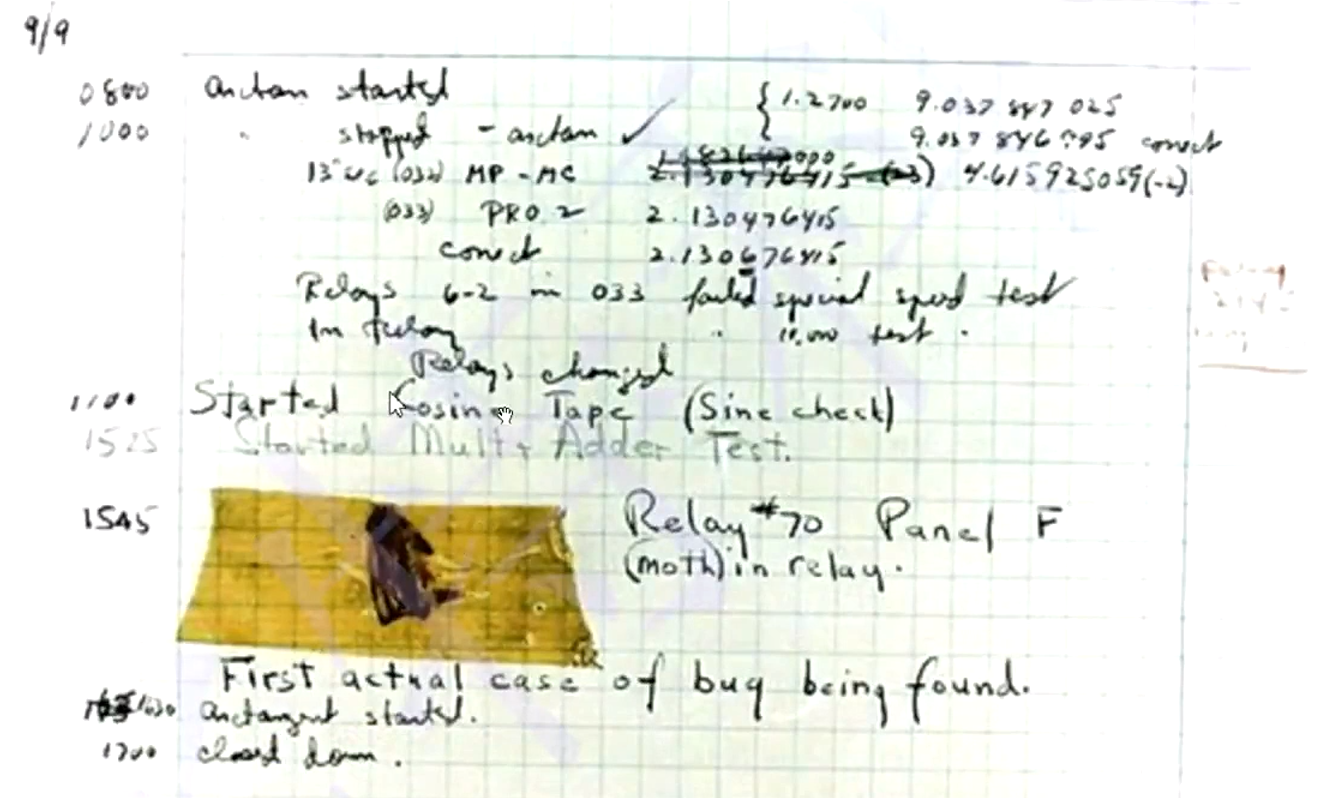 9/9
0800 arctan started { 1.2700 9.037 847 025
1000 " stopped - arctan ✓ 9.037 846 995 correct
13" uc (032) MP - MC 2.130476415 (-3) 4.615925059(-2)
(033) PRO 2 2.130476415
correct 2.130676415
Relays 6-2 in 033 failed special speed test
In relay " 10,000 test.
Relays changed
1100 Started Cosine Tape (Sine check)
1525 Started Mult + Adder Test.
1545 Relay #70 Panel F
(moth) in relay.
First actual case of bug being found.
1630 arctangent started.
1700 closed down.